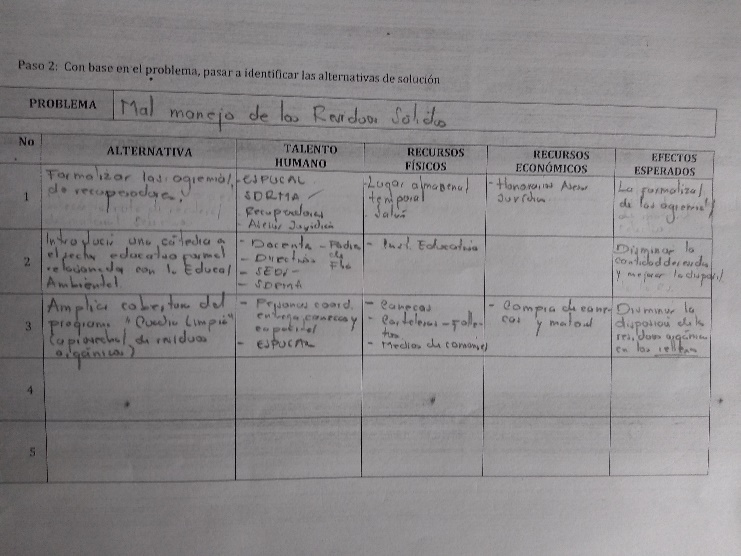 Paso 2: Con base en el problema, pasar a identificar las alternativas de solución
PROBLEMA Mal manejo de los Residuos Solidos
No ALTERNATIVA TALENTO HUMANO RECURSOS FÍSICOS RECURSOS ECONÓMICOS EFECTOS ESPERADOS
1
Formalizar las agremia/
de recuperadores,
- ESPUCAL
SDRMA
Recuperadores
- Asesor Juridico
- Lugar almacena/
temporal
- Honorarios Asesor
Juridico
La formaliza/
de las agremia/
2
Introducir una cátedra a
el sector educativo formal
relacionada con la Educa/
Ambiental.
- Docente - Padres
de Flia
- Directivos
- SEDI
- SDRMA
- Inst. Educativa
Disminuir la
cantidad de
y mejorar la
3
Ampliar cobertura del
programa "Cuadra Limpia"
(aprovecha/ de residuos
orgánicos)
- Personas coord.
entrega canecas y
- ESPUCAL
- Canecas
- Carteleras - Folle-
tos
- Medios de
- Compra de cane-
cas y material
Disminuir la
disposición de los
residuos orgánicos
en los rellenos
4
5